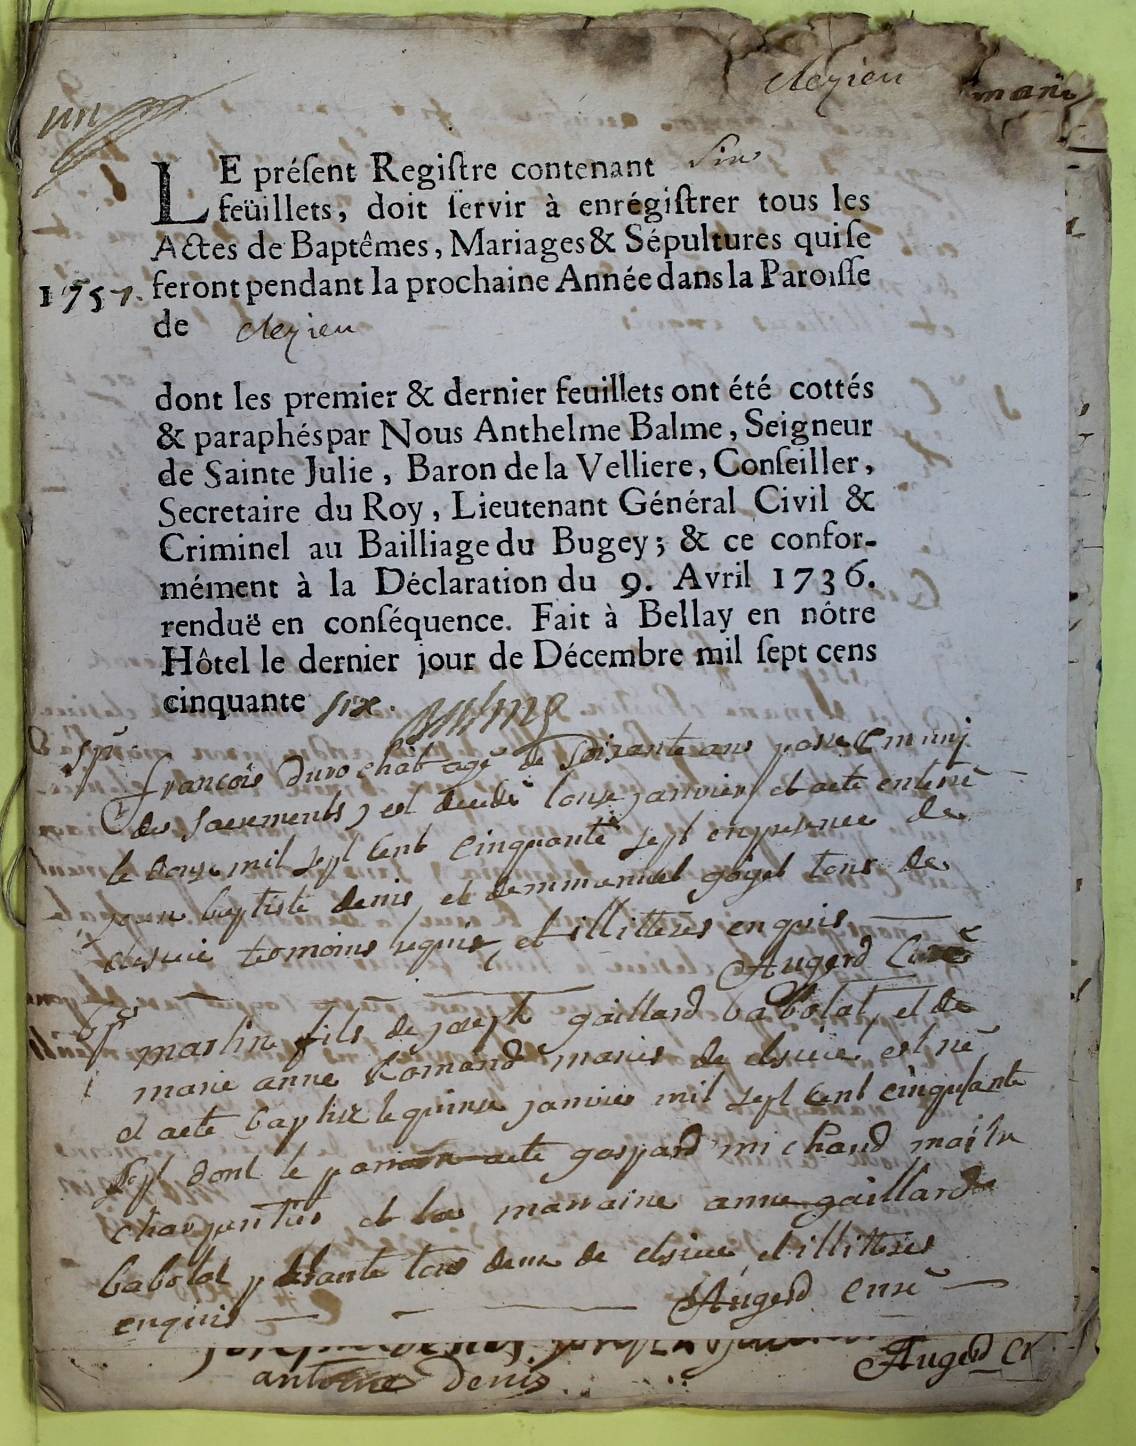 un
cleyzieu
LE préſent Regiſtre contenant Six
feüillets, doit ſervir à enrégiſtrer tous les
Actes de Baptêmes, Mariages & Sépultures qui ſe
1757. feront pendant la prochaine Année dans la Paroiſſe
de cleyzieu
dont les premier & dernier feuillets ont été cottés
& paraphés par Nous Anthelme Balme, Seigneur
de Sainte Julie, Baron de la Velliere, Conſeiller,
Secretaire du Roy, Lieutenant Général Civil &
Criminel au Bailliage du Bugey; & ce confor-
mément à la Déclaration du 9. Avril 1736.
renduë en conſéquence. Fait à Bellay en nôtre
Hôtel le dernier jour de Décembre mil ſept cens
cinquante six. Balme
françois durochat agé de soixante ans muni
des sacrements est decedé janvier et aeté enterré
le douze mil sept cent cinquante sept en presence de
jean baptiste denis, et demmanuel goiget tous de
temoins requis et illitterés enquis
Augerd Curé
martin fils de joseph gaillard babolat, et de
marie anne Romand mariés de est né
et aeté baptizé le quinze janvier mil sept cent cinquante
sept dont le parain aeté gaspard michaud maitre
charpentier et la marraine anne gaillard
babolat tous deux de et illitterés
enquis Augerd curé
antoine denis Augerd